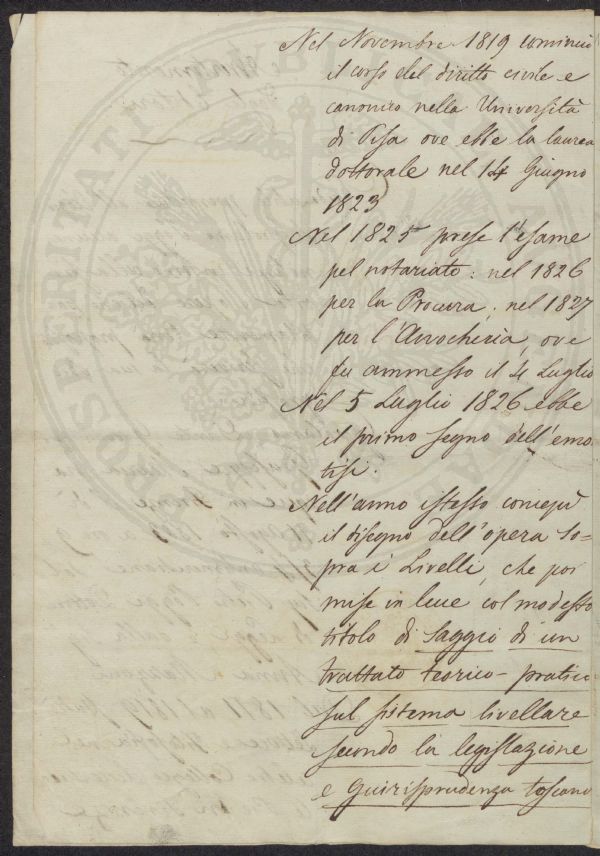 Nel Novembre 1819 cominciò
il corso del diritto civile e
canonico nella Università
di Pisa ove ebbe la laurea
dottorale nel 14 Giugno
1823
Nel 1825 prese l'esame
pel notariato: nel 1826
per la Procura, nel 1827
per l'Avvocheria, ove
fu ammesso il 4 Luglio
Nel 5 Luglio 1826 ebbe
il primo segno dell'emo
tisi.
Nell'anno istesso concepì
il disegno dell'opera so=
pra i Livelli, che poi
mise in luce col modesto
titolo di Saggio di un
trattato teorico-pratico
sul sistema livellare
secondo la legislazione
e Guirisprudenza toscana